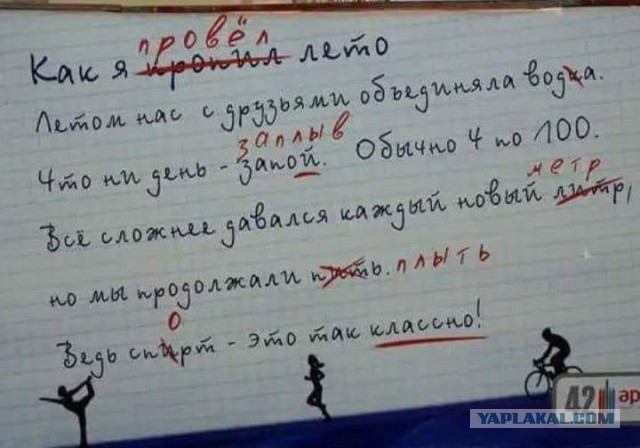 провёл
Как я пропил лето
Летом нас с друзьями объединяла водка.
заплыв
Что ни день - запой. Обычно 4 по 100.
метр
Всё сложнее давался каждый новый литр,
но мы продолжали пить. плыть
о
Ведь спирт - это так классно!
42 ар
YAPLAKAL.COM